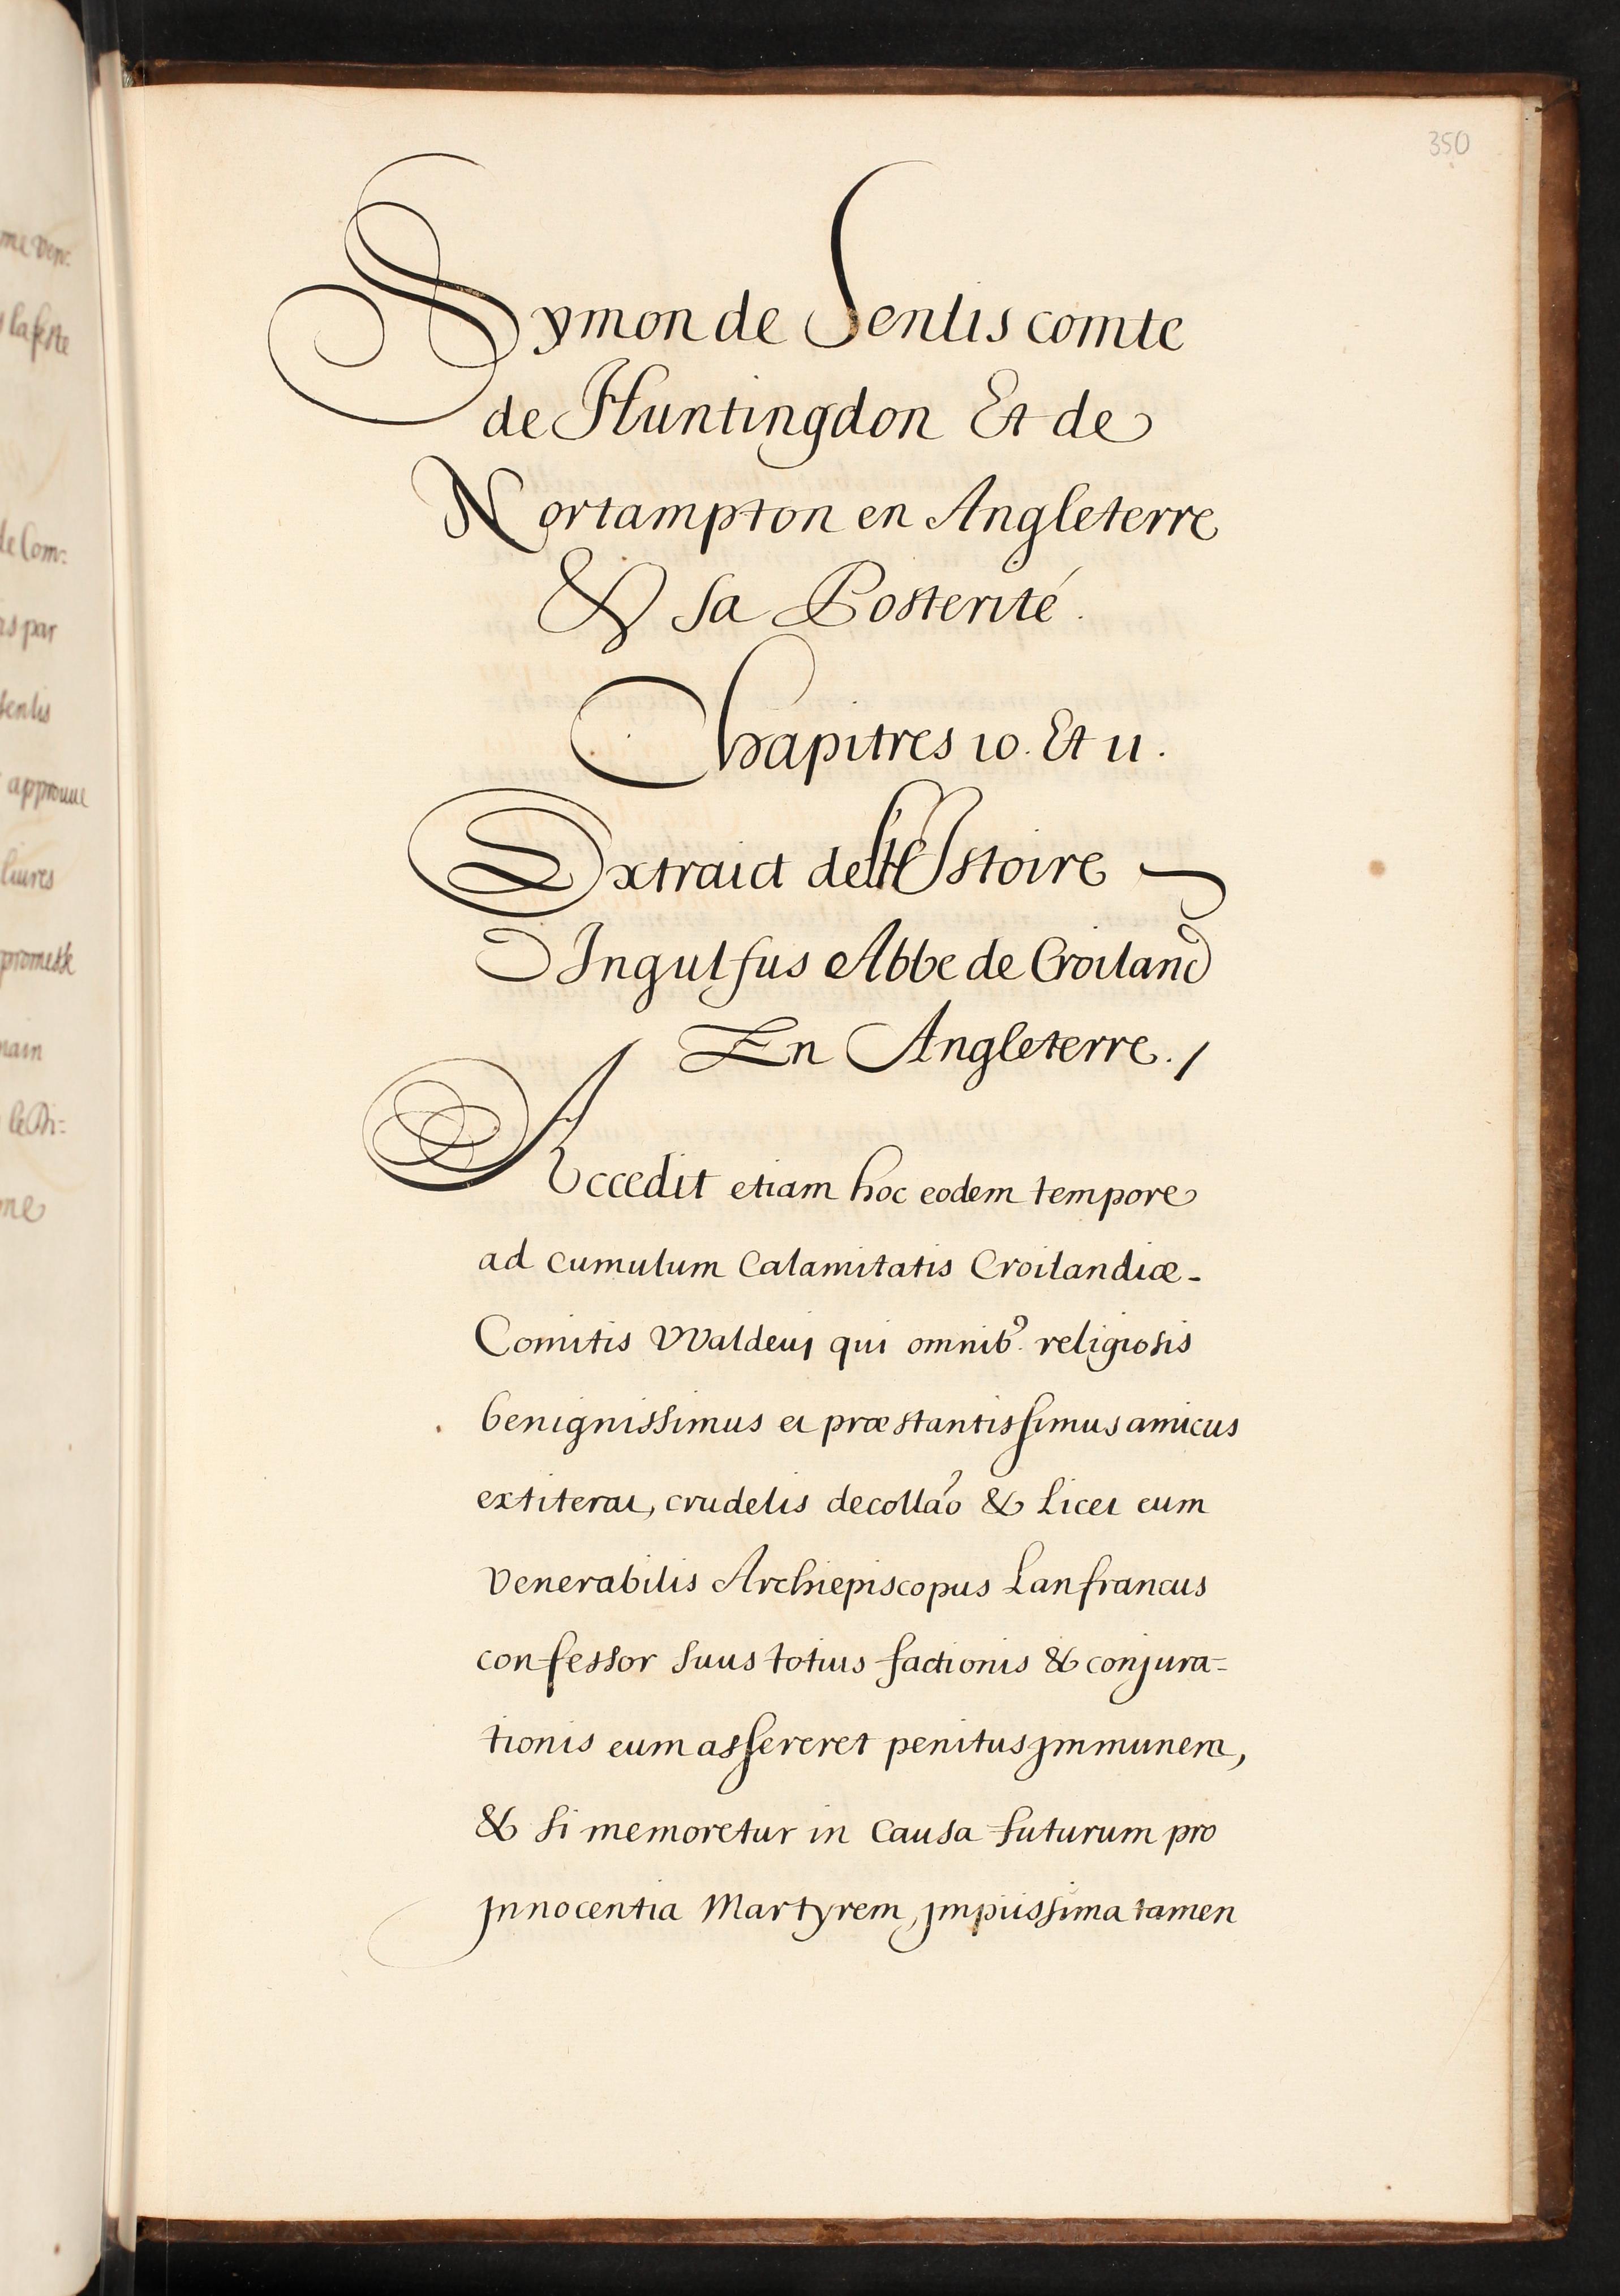 350
Symon de Senlis comte
de Huntingdon Et de
Nortampton en Angleterre
& sa Posterité.
Chapitres 10. Et 11.
Extraict de l'Histoire
D Ingulfus Abbe de Croiland
En Angleterre./
Accedit etiam hoc eodem tempore
ad cumulum Calamitatis Croilandiæ
Comitis VValdeuj qui omnib9. religiosis
benignissimus et præstantissimus amicus
extiterat, crudelis decollaõ & Licet eum
Venerabilis Archiepiscopus Lanfrancus
confessor suus totius factionis & conjura=
tionis eum assereret penitus jmmunem,
& si memoretur in Causa futurum pro
jnnocentia Martyrem, jmpiissima tamen
la feste
de Com=
par
senlis
approuue
liures
main